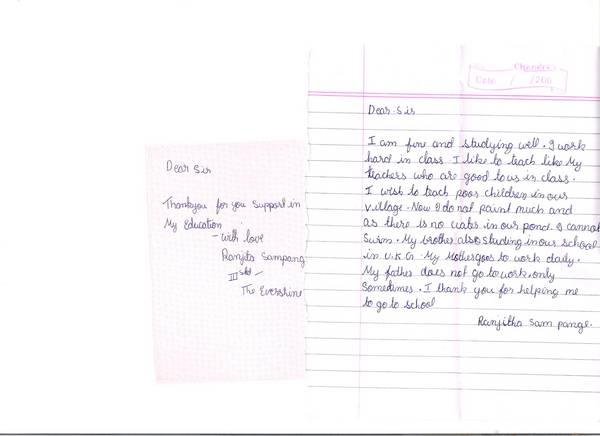 Dear Sir
Thankyou for you Support in
My Education
- with love
Ranjita Sampang
III std -
The Evershine
Date / /200
Dear Sir
I am fine and studying well. I work
hard in class I like to teach like My
teachers who are good to us in class.
I wish to teach poor children in our
village. Now I do not paint much and
as there is no water in our pond. I cannot
Swim. My brother also studing in our school
in U.K.G. My Mother goes to work daily.
My father does not go to work. only
Sometimes. I thank you for helping me
to go to school
Ranjitha Sam pange.